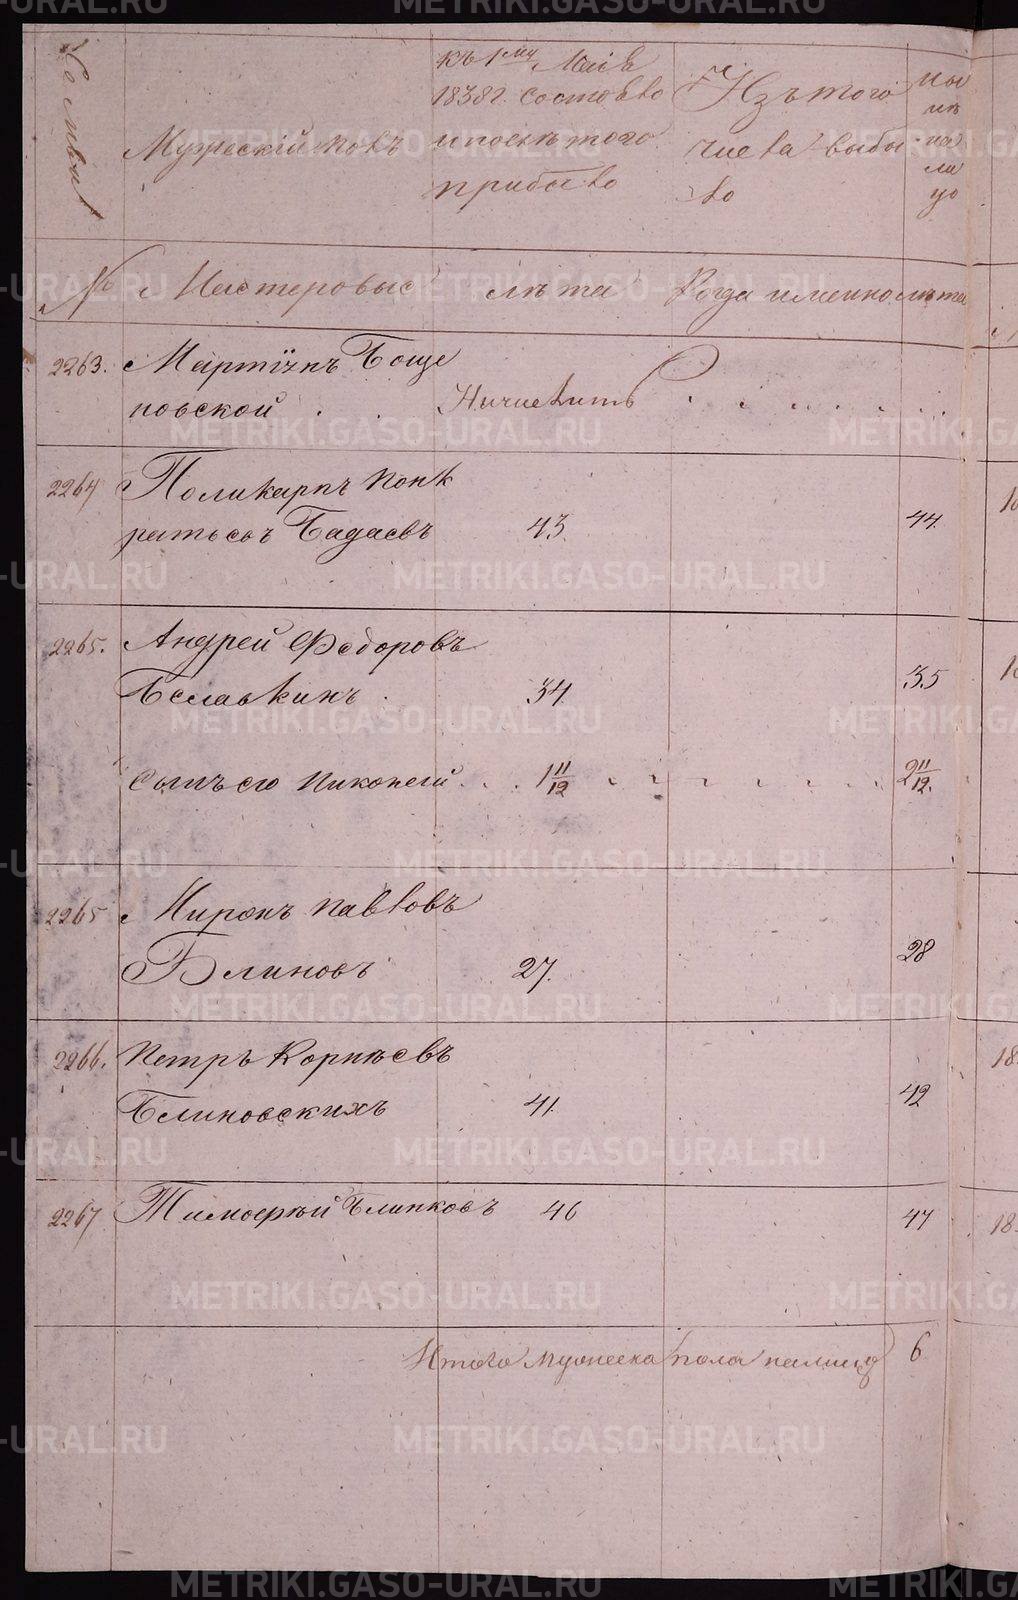 Семьи
Мужескій полъ
къ 1му Маія
1838г. состояло
и послѣ того
прибыло
Изъ того
числа выбы
ло
Ны
нѣ
на
ли
цо
№
Мастеровые
лѣта
Когда именно
лѣта
2263.
Мартинъ Боще
повской . . Ничислитъ . . . . . . .
2264
Поликарпъ Понк
ратьевъ Бадаевъ 43. 44.
2265.
Андрей Федоровъ
Белавкинъ . 34. 35
сынъ его Никонъ . . . 1 11/12 . . . . . . . 2 11/12.
2265
Миронъ Павловъ
Блиновъ 27. 28
2266.
Петръ Корнѣевъ
Блиновскихъ 41. 42
2267
Тимофѣй Блинковъ 46 47
Итого мужеска пола налицо 6
METRIKI.GASO-URAL.RU